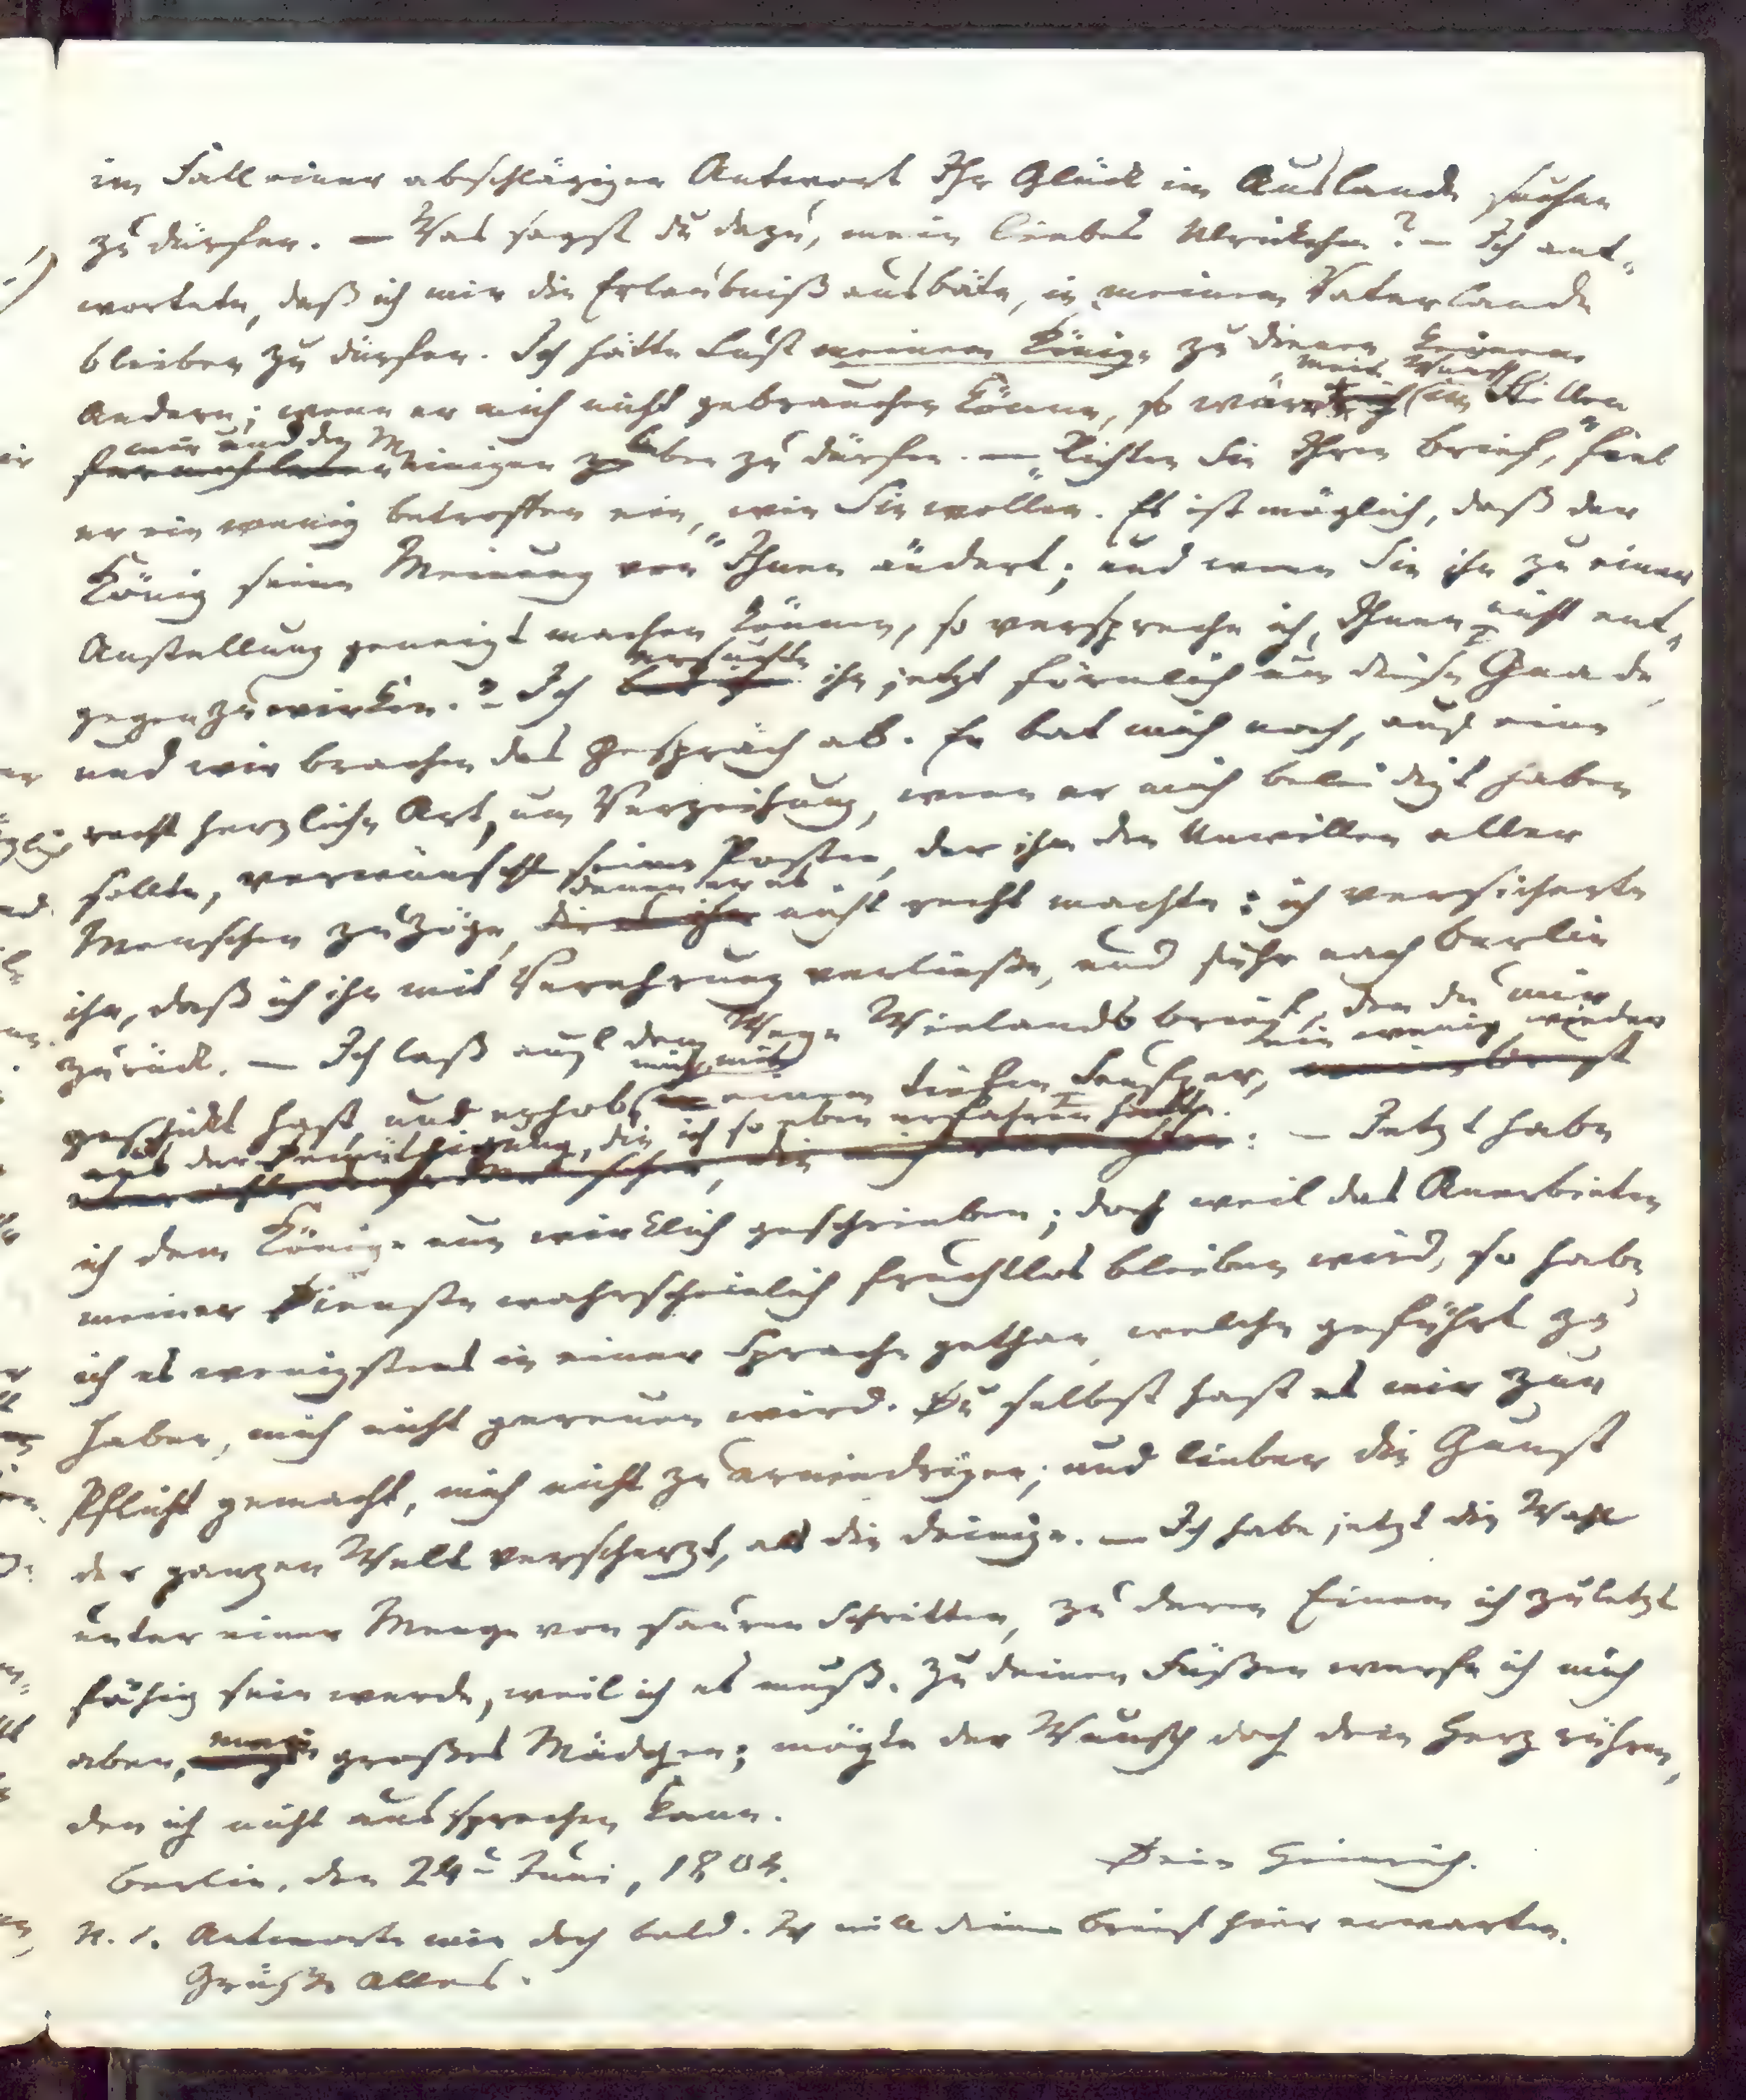 im Fall einer abschlägigen Antwort Ihr Glück im Auslande suchen
zu dürfen. — Was sagst du dazu, mein liebes Ulrickchen? — Ich ant-
wortete, daß ich mir die Erlaubniß ausbäte, in meinem Vaterlande
bleiben zu dürfen. Ich hätte Lust meinem Könige zu dienen, keinem
Andern; wenn er mich nicht gebrauchen könne, so wäre mein Wunsch im Stillen
mir und den Meinigen leben zu dürfen. — „Richten Sie Ihren Brief,“ fiel
er ein wenig betroffen ein, „wie Sie wollen. Es ist möglich, daß der
König seine Meinung von Ihnen ändert; und wenn Sie ihn zu einer
Anstellung geneigt machen können, so verspreche ich, Ihnen nicht ent-
gegenzuwirken.“ — Ich ersuchte ihn jetzt förmlich um diese Gnade,
und wir brachen das Gespräch ab. Er bat mich noch, auf eine
recht herzliche Art, um Verzeihung, wenn er mich beleidigt haben
sollte, verwünschte seinen Posten, der ihm den Unwillen aller
Menschen zuzöge, denen er es nicht recht machte: ich versicherte
ihn, daß ich ihn mit Verehrung verließe, und fuhr nach Berlin
zurück. — Ich laß auf dem Wege Wielands Brief, den du mir
geschickt hast und erhob mich, mit einem tiefen Seufzer, ein wenig wieder
aus der Demüthigung, die ich so eben erfahren hatte. — Jetzt habe
ich dem Könige nun wirklich geschrieben; doch weil das Anerbieten
meiner Dienste wahrscheinlich fruchtlos bleiben wird, so habe
ich es wenigstens in einer Sprache gethan, welche geführt zu
haben, mich nicht gereuen wird. Du selbst hast es mir zur
Pflicht gemacht, mich nicht zu erniedrigen; und lieber die Gunst
der ganzen Welt verscherzt, als die deinige. — Ich habe jetzt die Wahl
unter einer Menge von sauren Schritten, zu deren Einem ich zuletzt
fähig sein werde, weil ich es muß. Zu deinen Füßen werfe ich mich
aber, mein großes Mädchen; mögte der Wunsch doch dein Herz rühren,
den ich nicht aussprechen kann.
Berlin, den 24t Juni, 1804. Dein Heinrich.
N. S. Antworte mir doch bald. Ich will deinen Brief hier erwarten.
Grüße Alles.